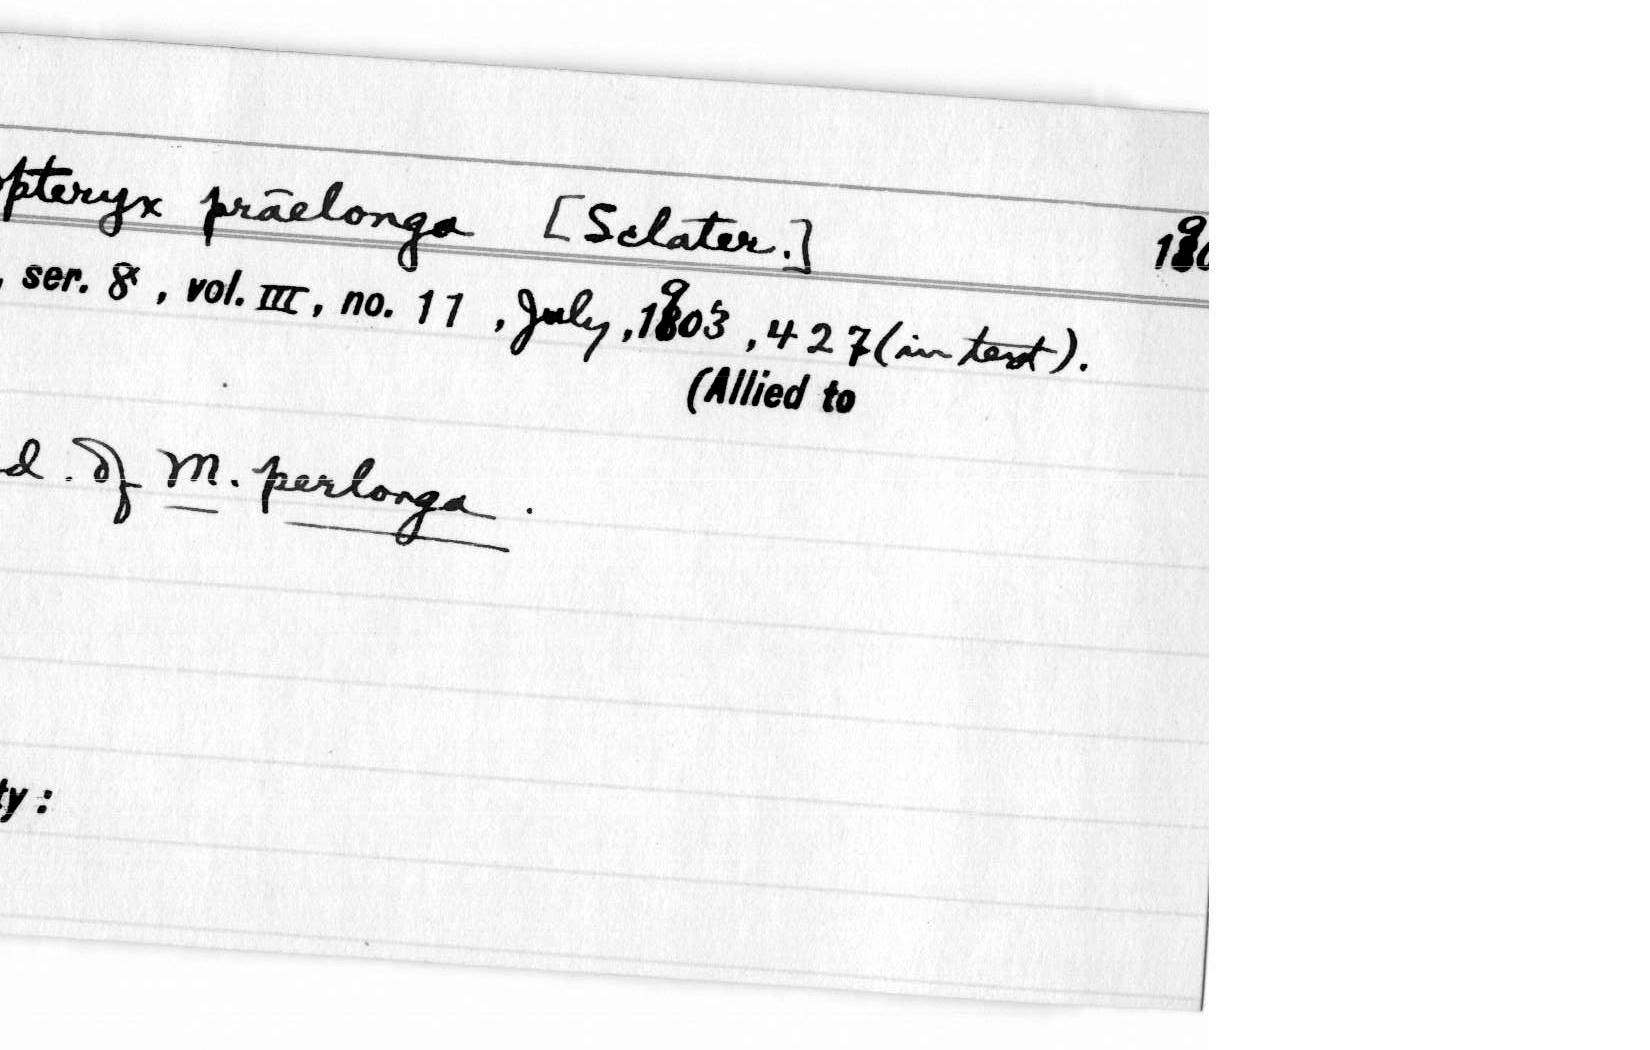 opteryx präelonga [Sclater.] 190
, ser. 8, vol. III, no. 11, July, 1903, 427 (in text).
(Allied to
d. of M. perlonga.
ty: